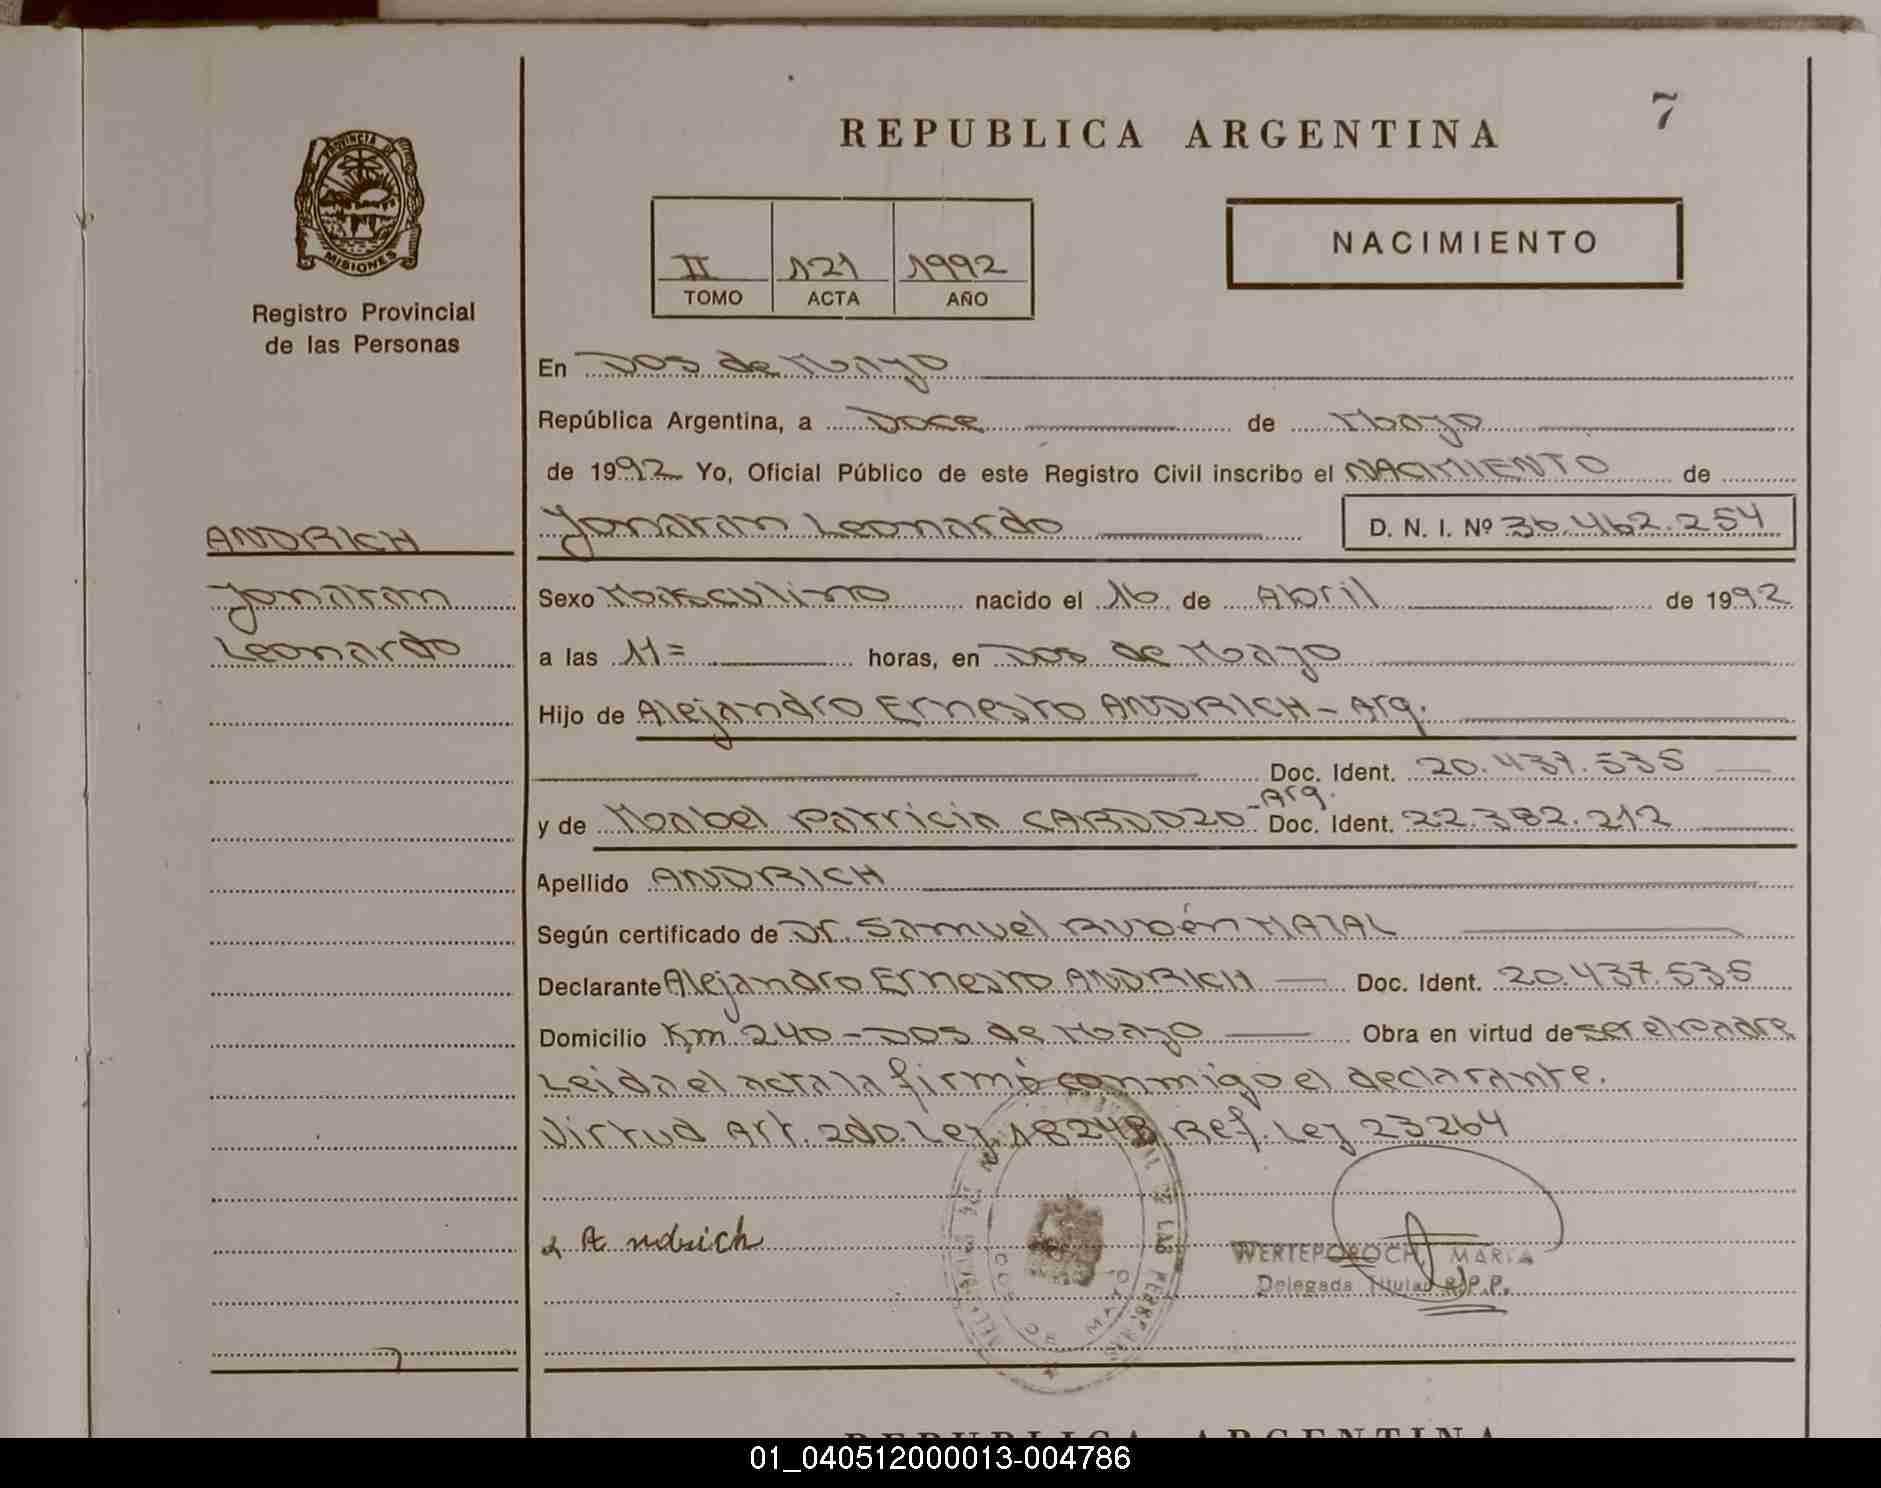 7
REPUBLICA ARGENTINA
PROVINCIA DE
MISIONES
Registro Provincial
de las Personas
NACIMIENTO
II 121 1992
TOMO ACTA AÑO
En Dos de Mayo
República Argentina, a Doce de Mayo
de 1992 Yo, Oficial Público de este Registro Civil inscribo el NACIMIENTO de
ANDRICH
Jonatan Leonardo D. N. I. Nº 36.462.254
Jonatan
Leonardo
Sexo Masculino nacido el 16 de Abril de 1992
a las 11= horas, en Dos de Mayo
Hijo de Alejandro Ernesto ANDRICH - Arg.
Doc. Ident. 20.437.535
y de Mabel Patricia CARDOZO - Arg. Doc. Ident. 22.382.212
Apellido ANDRICH
Según certificado de Dr. Samuel Rubén
Declarante Alejandro Ernesto ANDRICH Doc. Ident. 20.437.535
Domicilio Km 240 - Dos de Mayo Obra en virtud de ser el padre
Leida el acta la firmó conmigo el declarante.
Virtud Art. 2do. Ley 18248 Ref. Ley 23264
Andrich
WERTEPOROCH, MARIA
Delegada Titular R.P.P.
DE LAS PERSONAS
DOS DE MAYO
REPUBLICA ARGENTINA
01_040512000013-004786